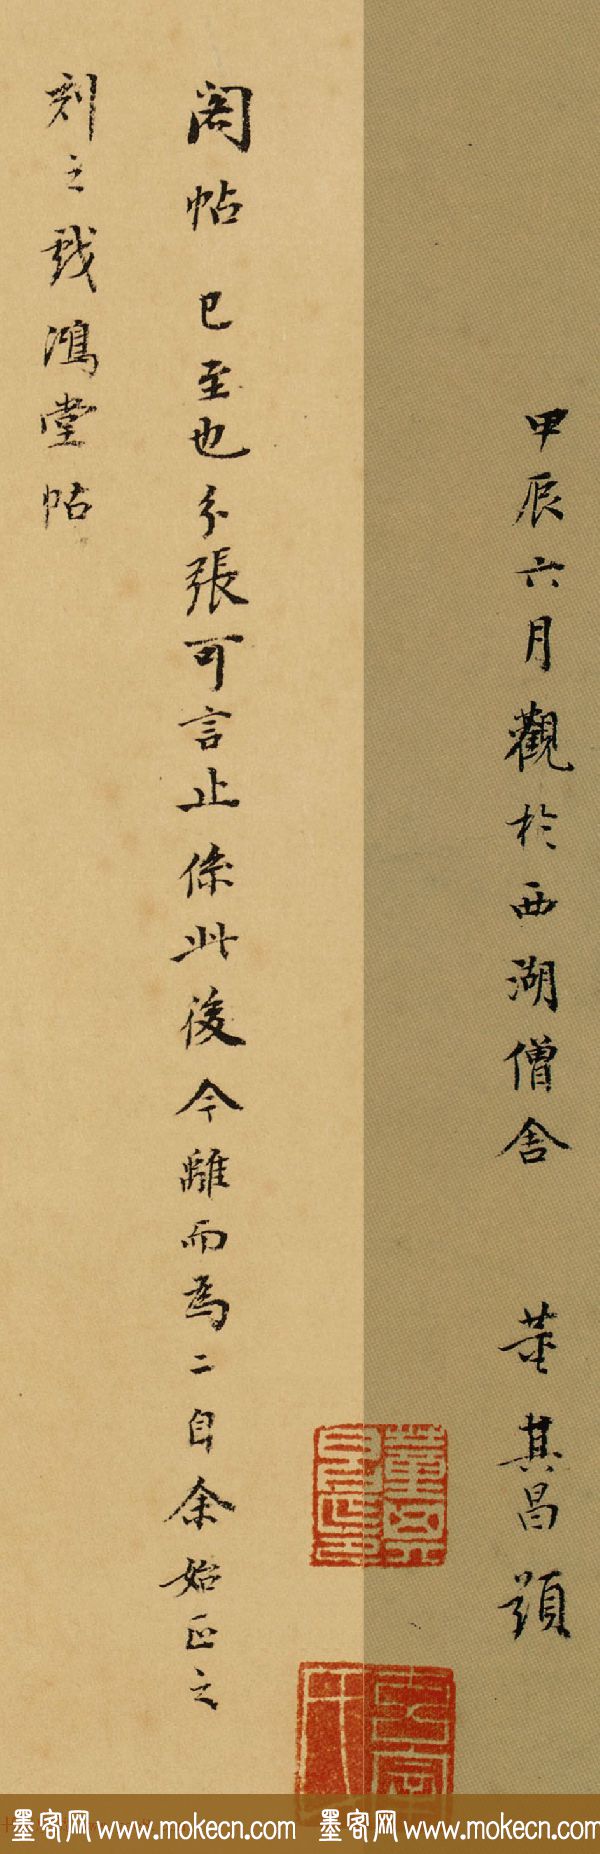 甲辰六月觀於西湖僧舍 董其昌題
閣帖已至也分張可言止係此後今離而為二自余始正之
刻之戲鴻堂帖
董其昌印
墨客网 www.mokecn.com 墨客网 www.mokecn.com